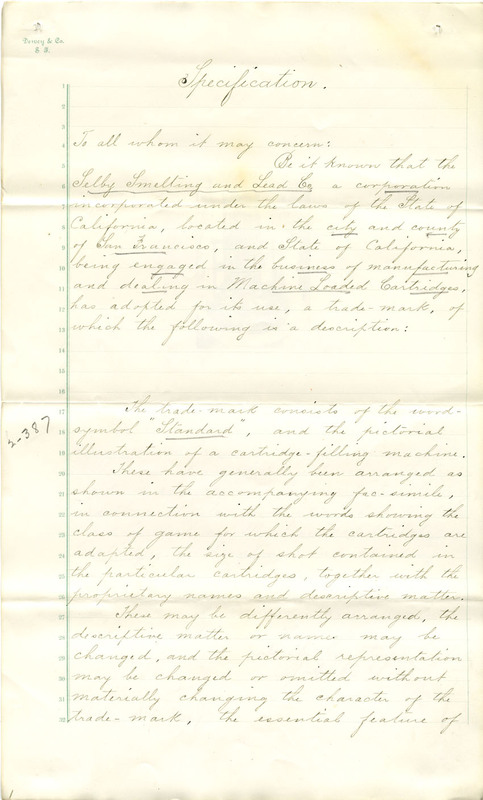 Dewey & Co.
S. F.
Specification.
1
2
3
4 To all whom it may concern:
5 Be it known that the
6 Selby Smelting and Lead Co a corporation
7 incorporated under the laws of the State of
8 California, located in the city and county
9 of San Francisco, and State of California,
10 being engaged in the business of manufacturing
11 and dealing in Machine Loaded Cartridges,
12 has adopted for its use, a trade-mark, of
13 which the following is a description:
14
15
16
17 The trade-mark consists of the word-
2-387
18 symbol "Standard", and the pictorial
19 illustration of a cartridge-filling machine.
20 These have generally been arranged as
21 shown in the accompanying fac-simile,
22 in connection with the words showing the
23 class of game for which the cartridges are
24 adapted, the size of shot contained in
25 the particular cartridges, together with the
26 proprietary names and descriptive matter.
27 These may be differently arranged, the
28 descriptive matter or names may be
29 changed, and the pictorial representation
30 may be changed or omitted without
31 materially changing the character of the
32 trade-mark, the essential feature of